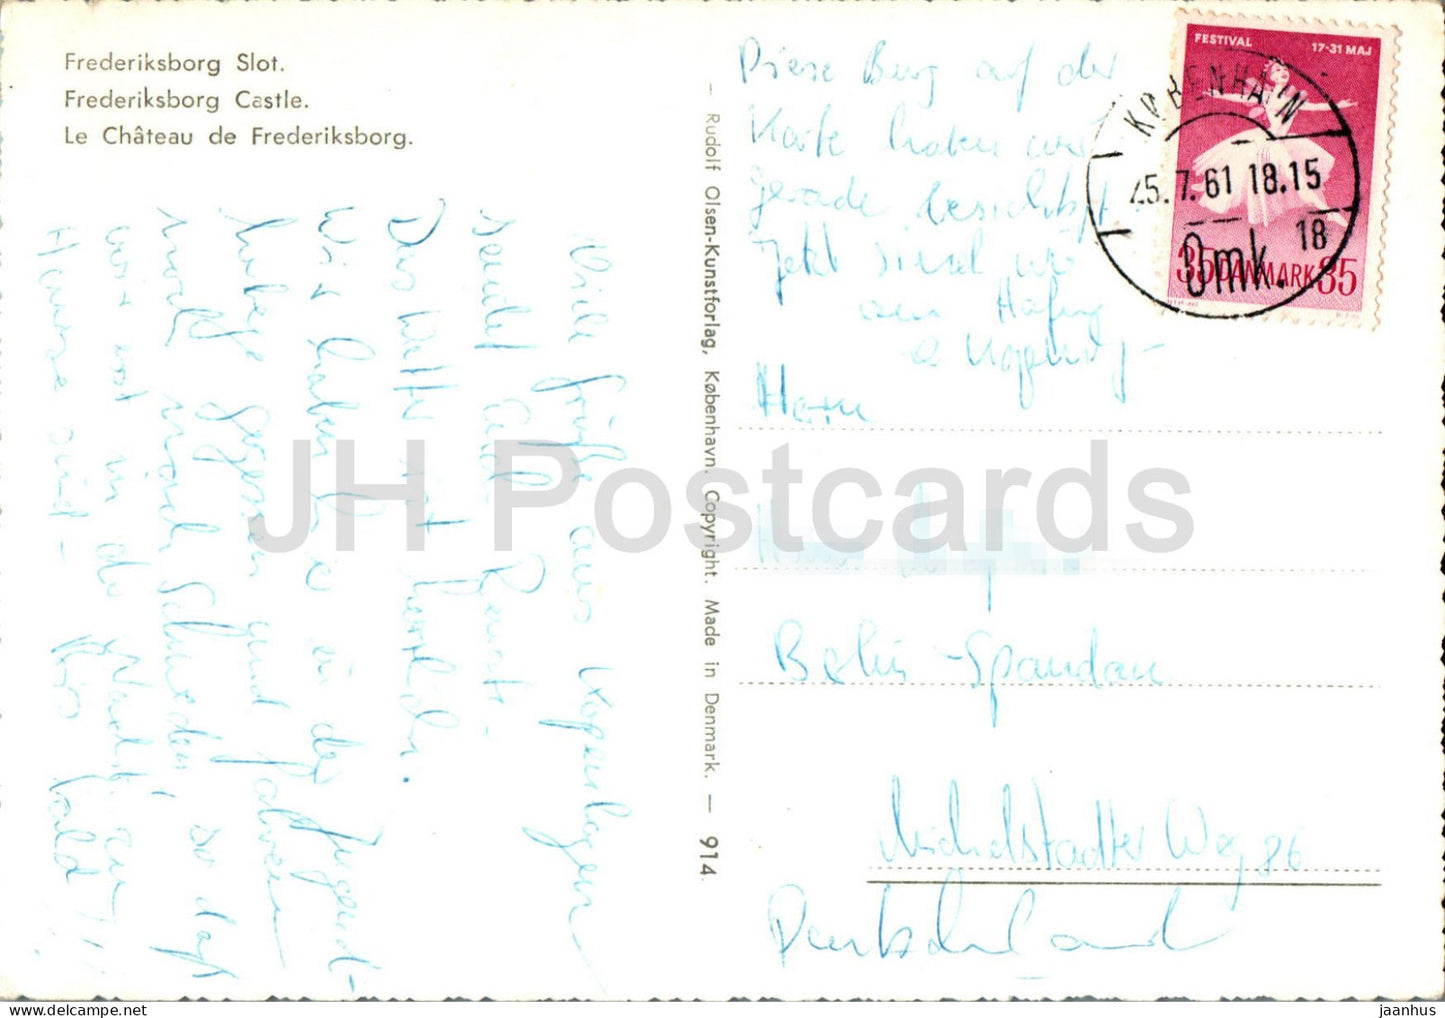 Frederiksborg Slot.
Frederiksborg Castle.
Le Château de Frederiksborg.
Viele Grüße aus Kopenhagen
sendet Euch
Das Wetter ist herrlich.
Wir haben hier in der Jugend-
herberge gegessen und fahren
noch nach Schweden, so daß
wir erst in der Nacht zu
Hause sind.
bald
- Rudolf Olsen-Kunstforlag, København. Copyright. Made in Denmark. - 914.
Diese Burg auf der
Karte haben wir
gerade besichtigt
Jetzt sind wir
am Hafen
FESTIVAL 17-31 MAJ
35 DANMARK 35
KØBENHAVN
25.7.61 18.15
18
Omk.
Herrn
Berlin-Spandau
Michelstadter Weg 86
Deutschland
JH Postcards
jaanhus